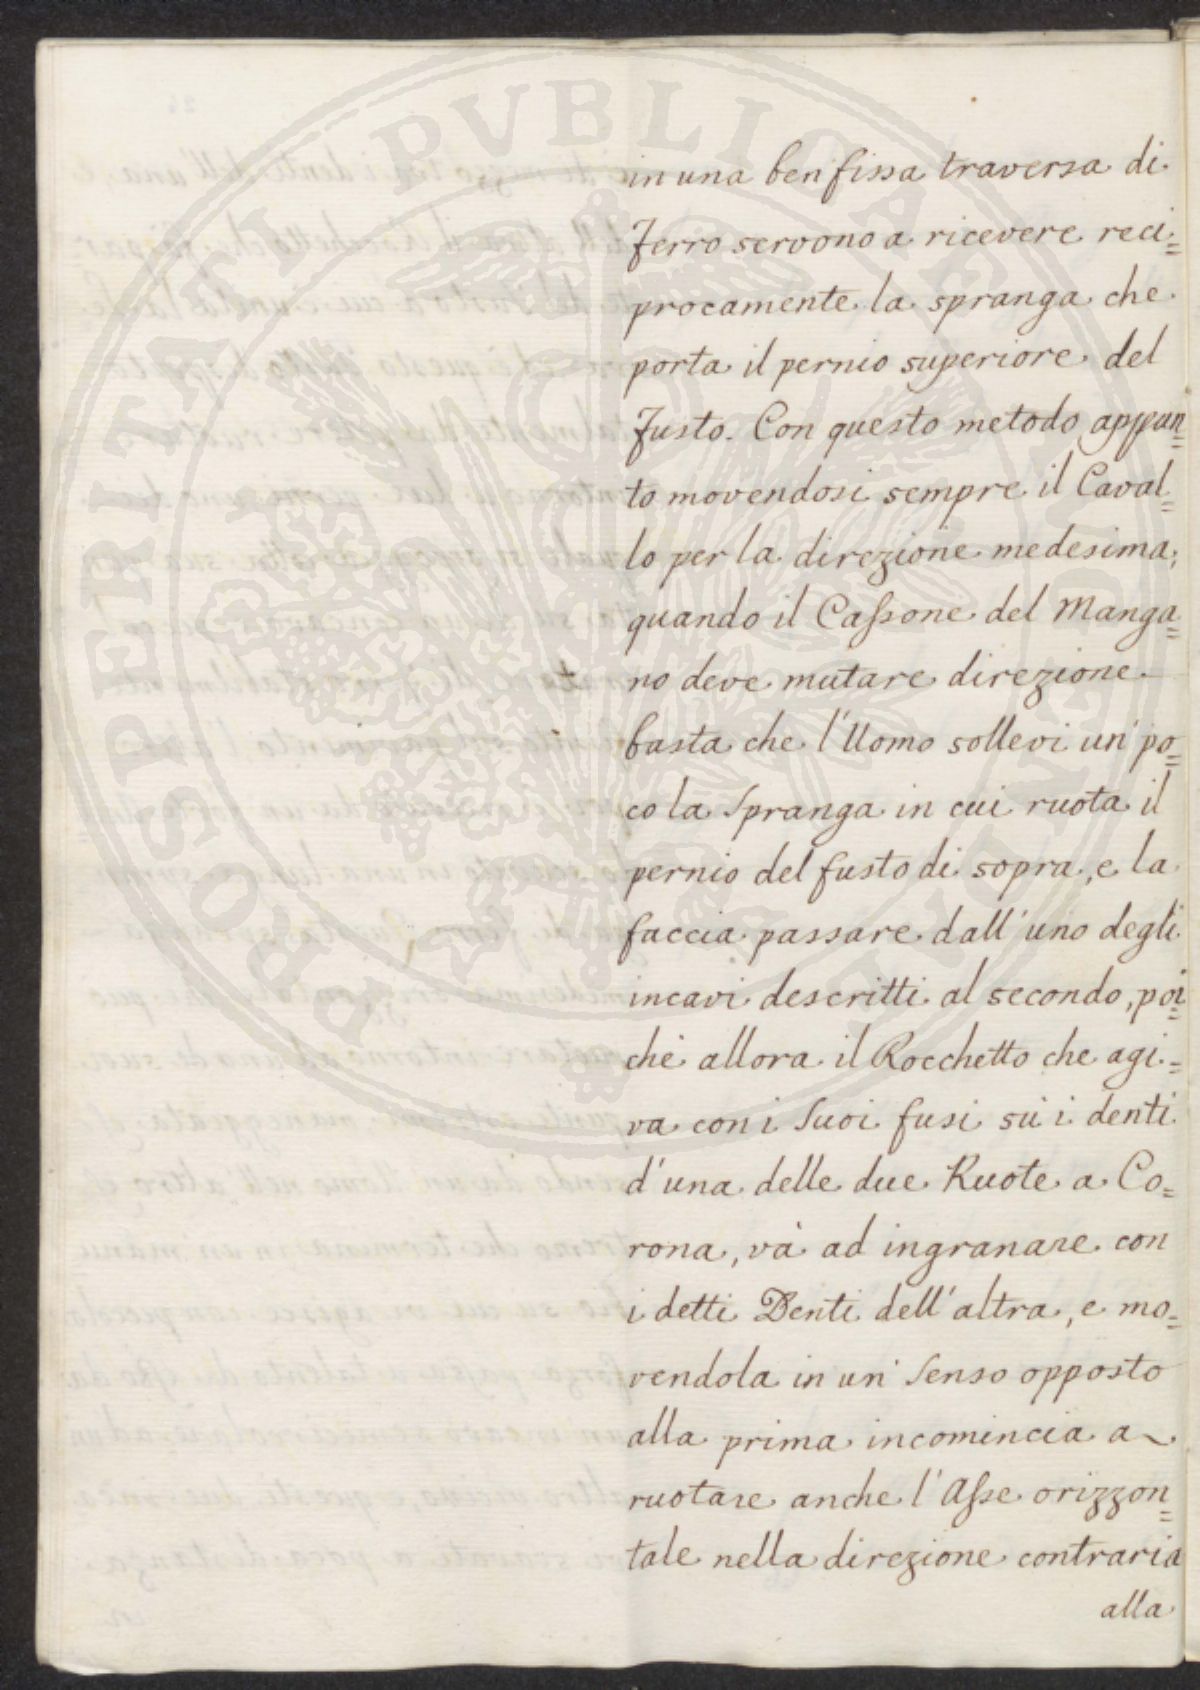 in una ben fissa traversa di
Ferro servono a ricevere reci=
procamente la spranga che
porta il pernio superiore del
Fusto. Con questo metodo appun=
to movendosi sempre il Caval=
lo per la direzione medesima,
quando il Caſsone del Manga=
no deve mutare direzione
basta che l'Uomo sollevi un' po=
co la Spranga in cui ruota il
pernio del fusto di sopra, e la
faccia passare dall' uno degli
incavi descritti al secondo, poi=
chè allora il Rocchetto che agi=
va con i Suoi fusi sù i denti
d'una delle due Ruote a Co=
rona, và ad ingranare con
i detti Denti dell' altra, e mo=
vendola in un' Senso opposto
alla prima incomincia a
ruotare anche l'Aſse orizzon=
tale nella direzione contraria
alla
PROSPERITATI PVBLICAE AVGENDAE